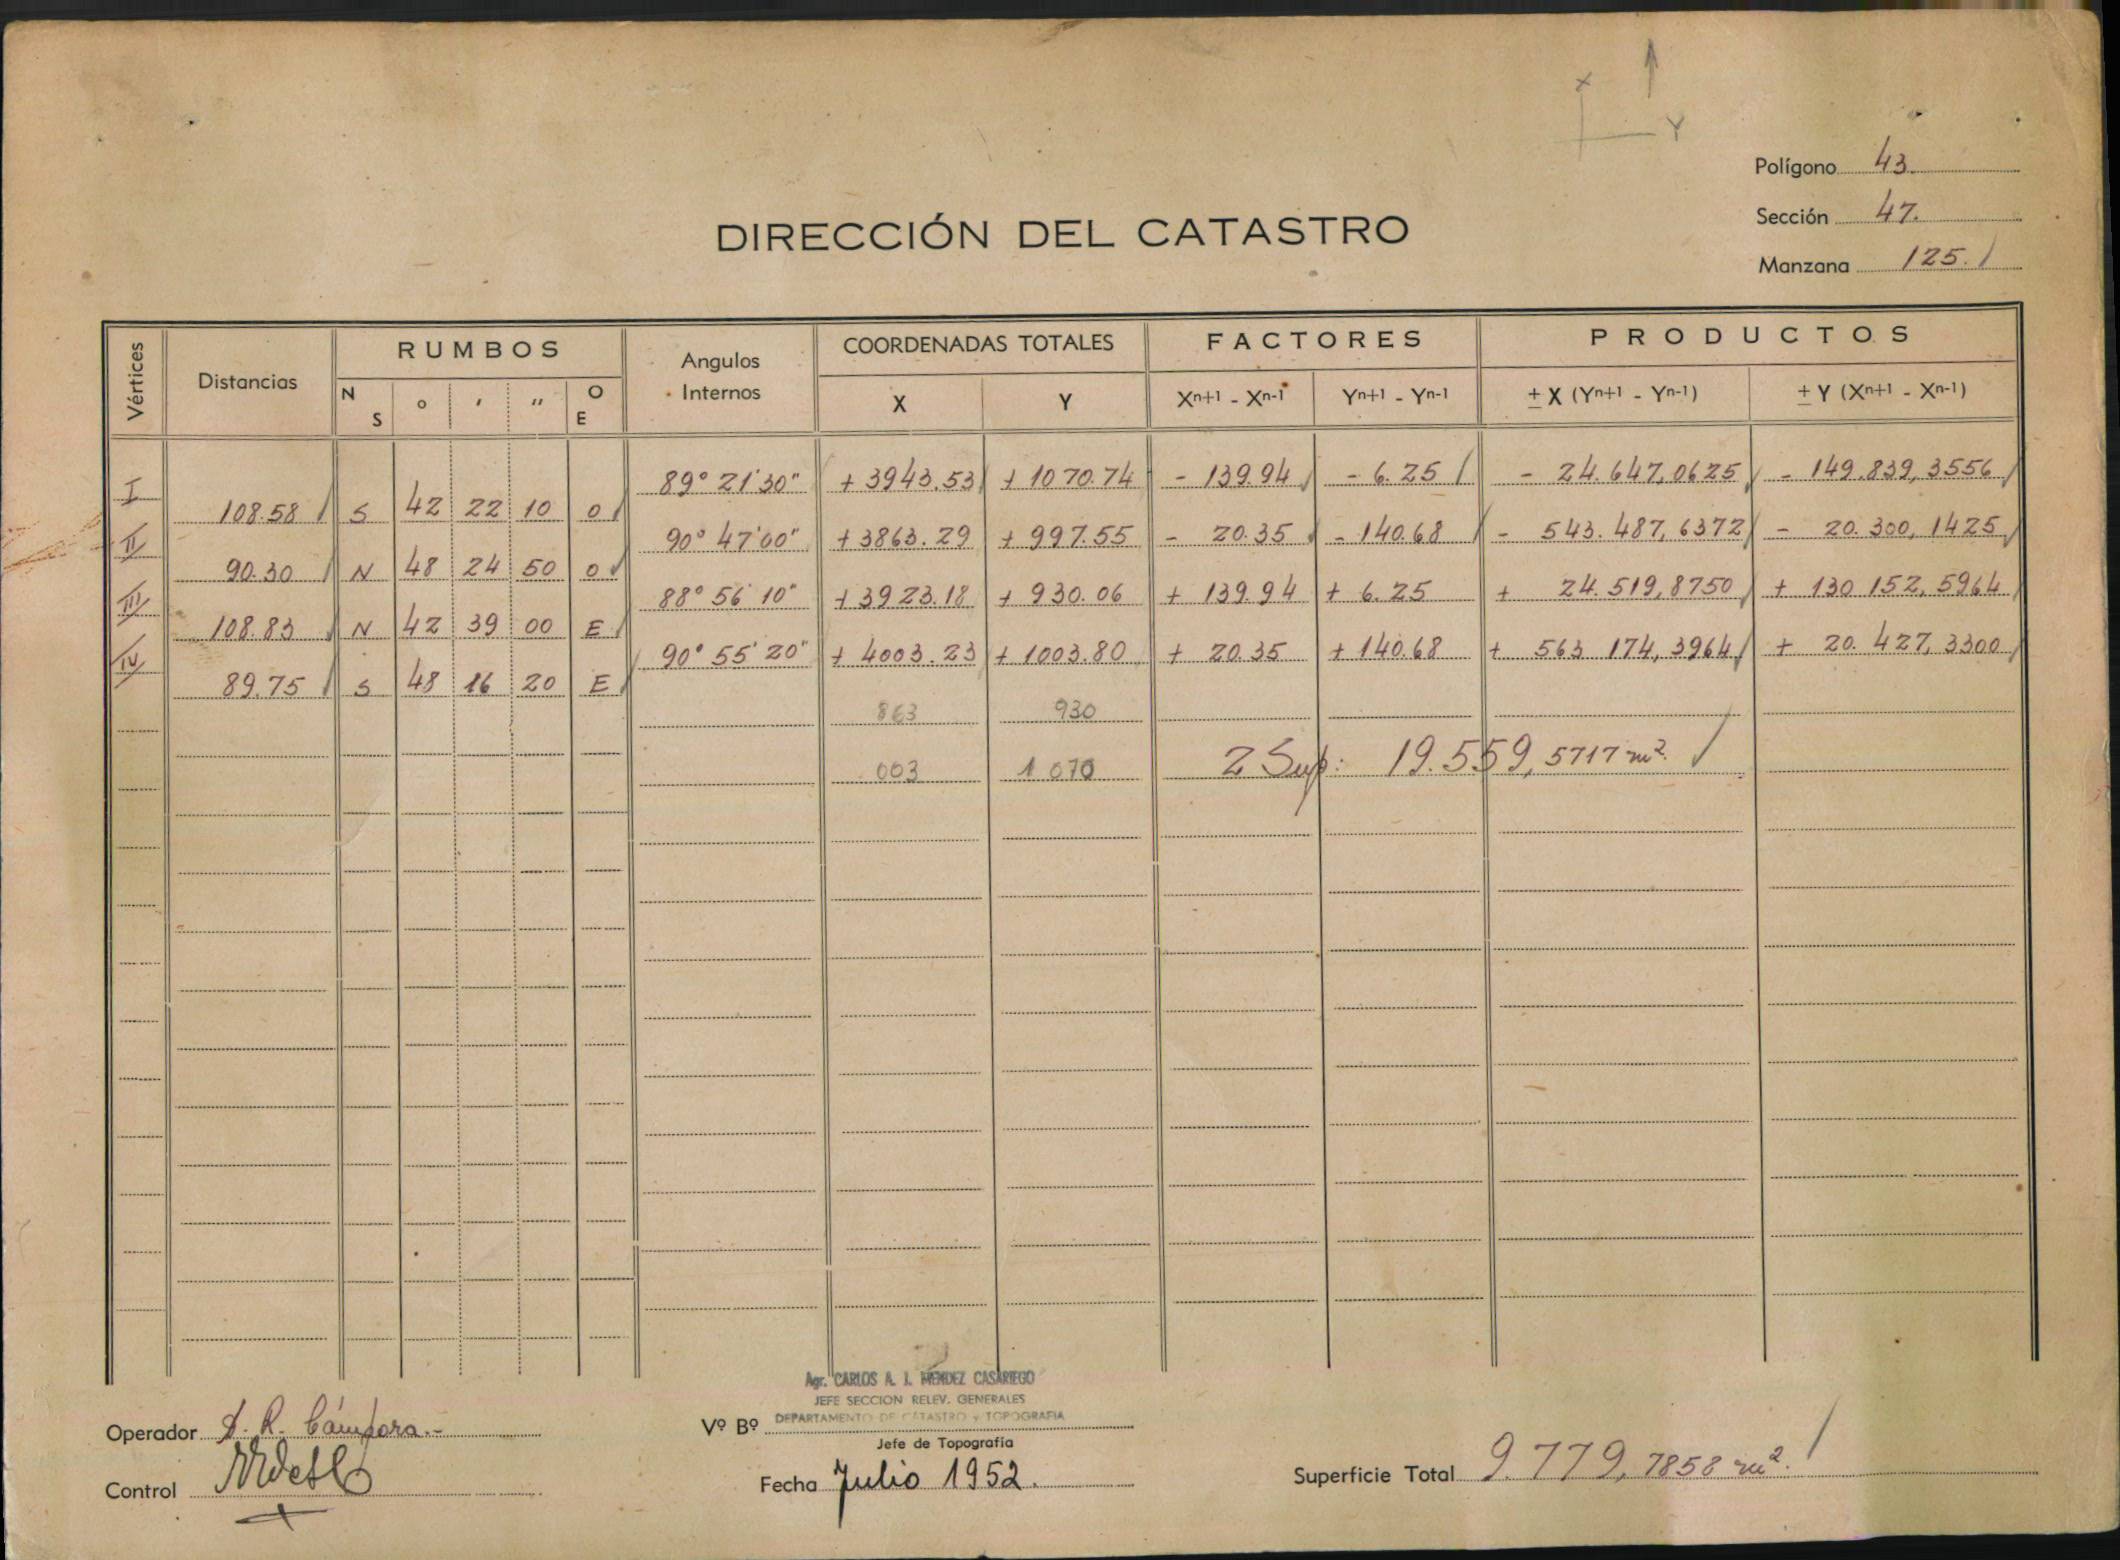 X
Y
Polígono 43.
Sección 47.
Manzana 125.
DIRECCIÓN DEL CATASTRO
Vértices Distancias RUMBOS Angulos Internos COORDENADAS TOTALES FACTORES PRODUCTOS
N S o ' '' O E X Y Xn+1 - Xn-1 Yn+1 - Yn-1 ± X (Yn+1 - Yn-1) ± Y (Xn+1 - Xn-1)
I 89° 21' 30" + 3943.53 + 1070.74 - 139.94 - 6.25 - 24.647,0625 - 149.839,3556
108.58 S 42 22 10 O
II 90° 47' 00" + 3863.29 + 997.55 - 20.35 - 140.68 - 543.487,6372 - 20.300,1425
90.30 N 48 24 50 O
III 88° 56' 10" + 3923.18 + 930.06 + 139.94 + 6.25 + 24.519,8750 + 130 152,5964
108.83 N 42 39 00 E
IV 90° 55' 20" + 4003.23 + 1003.80 + 20.35 + 140.68 + 563 174,3964 + 20.427,3300
89.75 S 48 16 20 E
863 930
003 1 070
2 Sup: 19.559,5717 m²
Agr. CARLOS A. J. MENDEZ CASARIEGO
JEFE SECCION RELEV. GENERALES
DEPARTAMENTO DE CATASTRO y TOPOGRAFIA
Operador R. Cámpora.-
Vº Bº
Jefe de Topografía
Control
Fecha Julio 1952.
Superficie Total 9.779,7858 m².